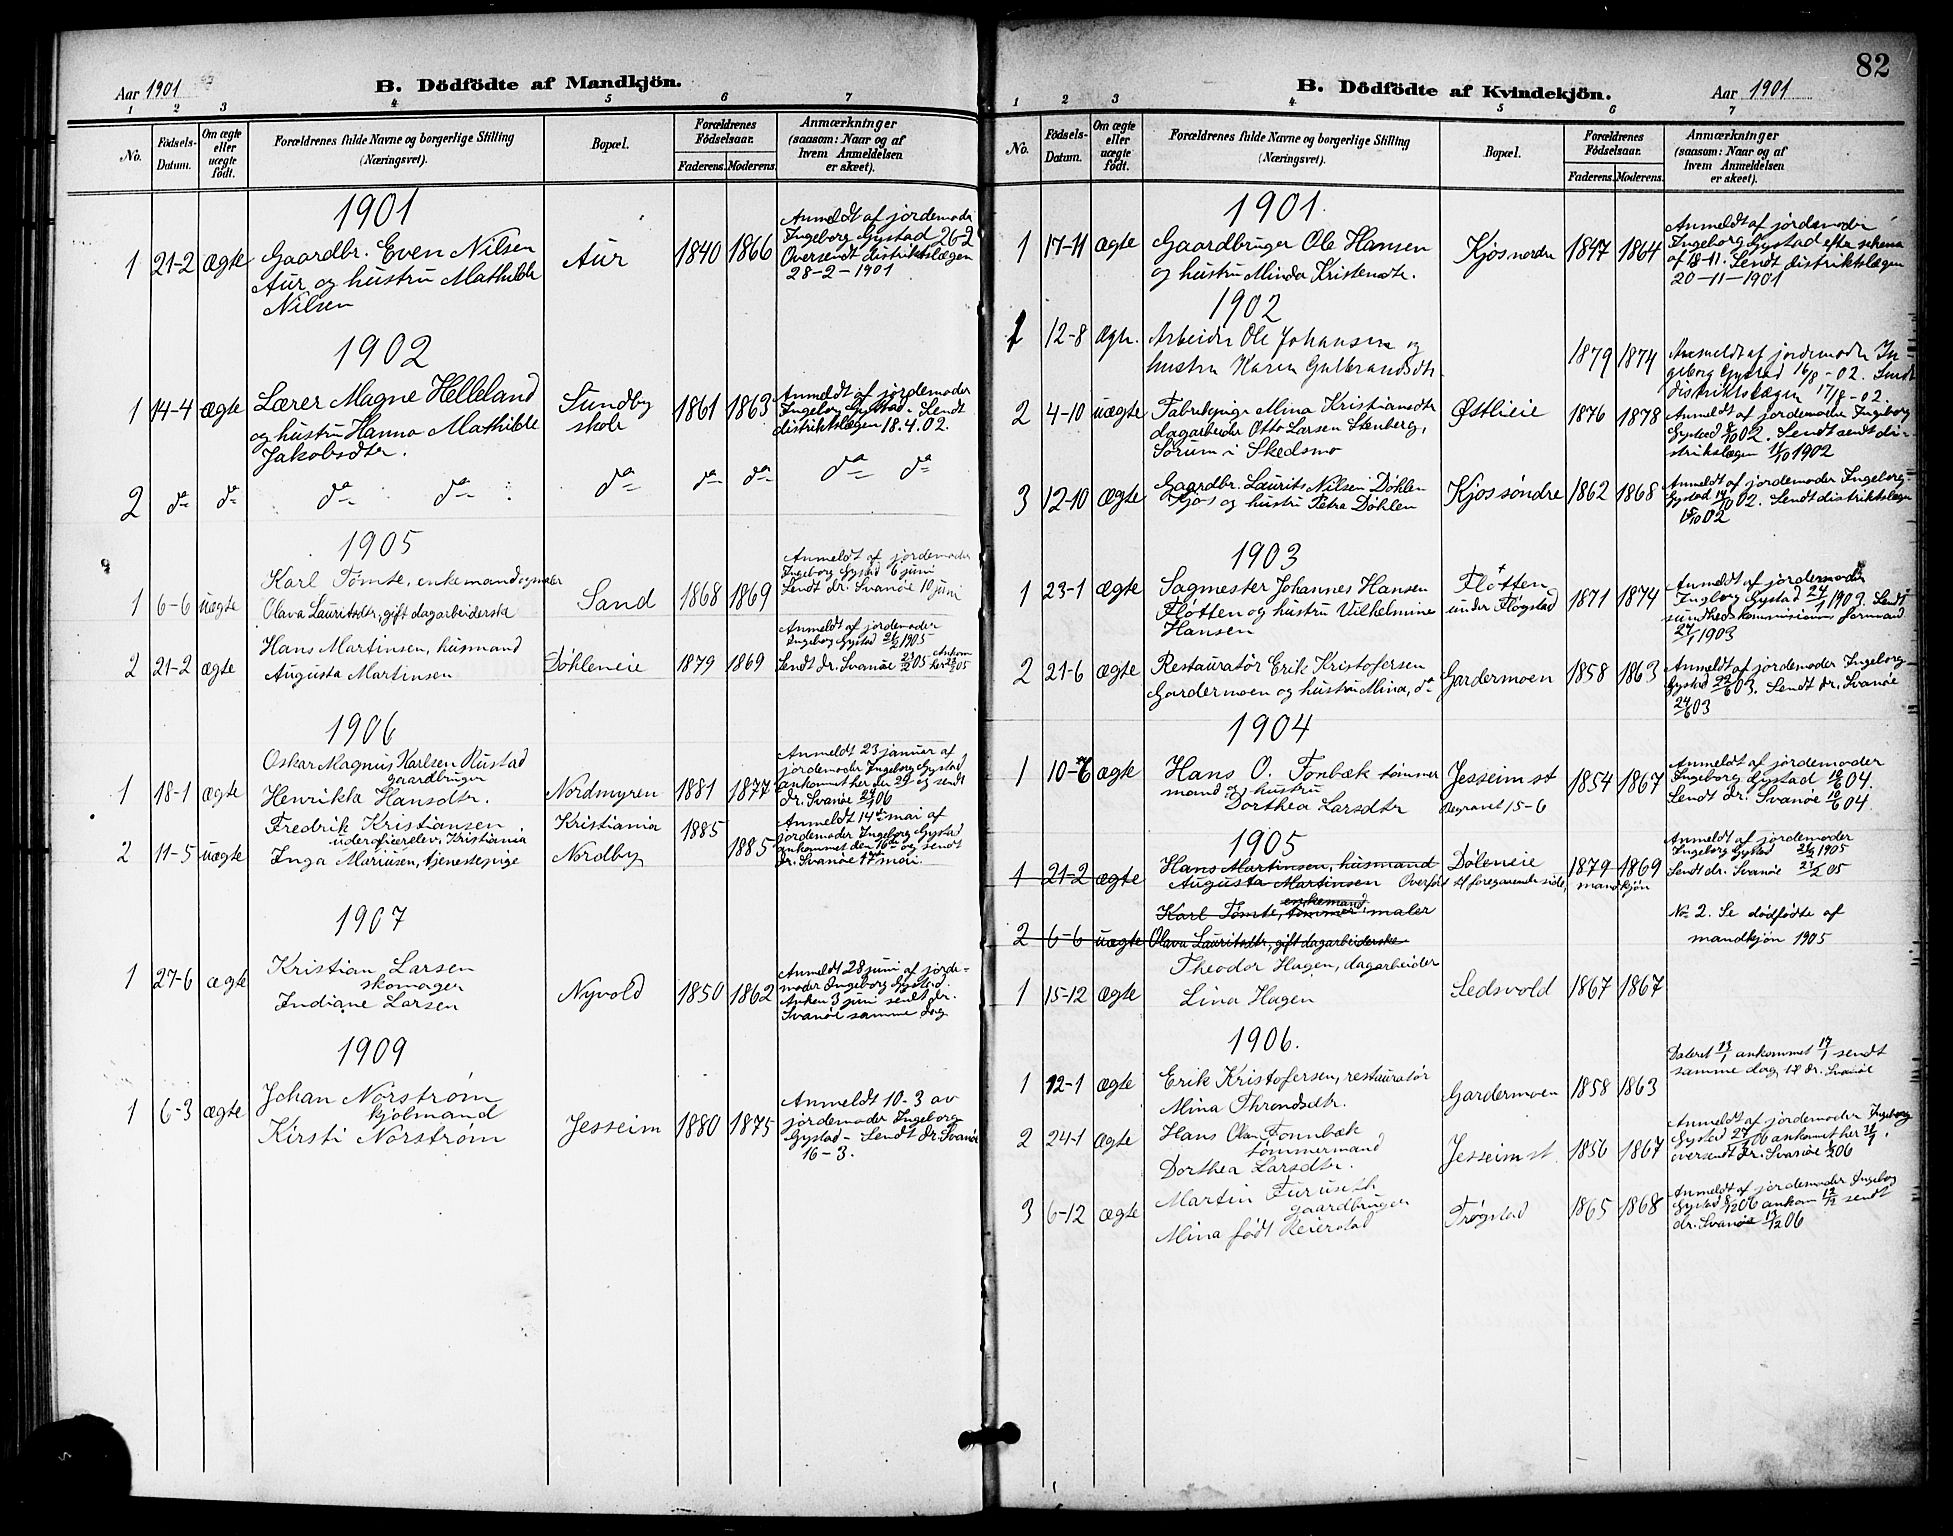 Aar 1901
B. Dödfödte af Mandkjön.
1 2 3 4 5 6 7
No.
Födsels-
Datum.
Om ægte
eller
uægte
födt.
Forældrenes fulde Navne og borgerlige Stilling
(Næringsvei).
Bopæl.
Forældrenes
Födselsaar.
Faderens. Moderens.
Anmærkninger
(saasom: Naar og af
hvem Anmeldelsen
er skeet).
1901
1 21-2 ægte
Gaardbr. Even Nilsen
Aur og hustru Mathilde
Nilsen
Aur
1840 1866
Anmeldt af jordemoder
Ingeborg Gystad 26-2
Oversendt distriktslægen
28-2-1901
1902
1 14-4 ægte
Lærer Magne Helleland
og hustru Hanna Mathilde
Jakobsdtr.
Sundby
skole
1861 1863
Anmeldt af jordemoder
Ingeborg Gystad. Sendt
distriktslægen 18.4.02.
2 da da da da da da da da da
1905
1 6-6 uægte
Karl Tømte, enkemand og maler
Olava Lauritsdtr, gift dagarbeiderske
Sand
1868 1869
Anmeldt af jordemoder
Ingeborg Gystad 6 juni
Sendt dr. Svanøe 10 juni
2 21-2 ægte
Hans Martinsen, husmand
Augusta Martinsen
Døhleneie
1879 1869
Anmeldt af jordemoder
Ingeborg Gystad 21/2 1905
Sendt dr. Svanøe 23/2 05 Ankom
her 23/2 05
1906
1 18-1 ægte
Oskar Magnus Karlsen Rustad
gaardbruger
Henrikka Hansdtr.
Nordmyren
1881 1877
Anmeldt 23 januar af
jordemoder Ingeborg Gystad
ankommet her den 29 og sendt
dr. Svanøe 29/1 06
2 11-5 uægte
Fredrik Kristiansen
underofficerelev, Kristiania
Inga Mariusen, tjenestepige
Kristiania
Nordby
1885
1885
Anmeldt 14de mai af
jordemoder Ingeborg Gystad
ankommet den 16de og sendt
dr. Svanøe 17de mai
1907
1 27-6 ægte
Kristian Larsen
skomager
Indiane Larsen
Nyvold
1850 1862
Anmeldt 28 juni af jorde-
moder Ingeborg Gystad.
Ankom 3 juni sendt dr.
Svanøe samme dag
1909
1 6-3 ægte
Johan Norstrøm
kjøbmand
Kirsti Norstrøm
Jesseim
1880 1875
Anmeldt 10-3 av
jordemoder Ingeborg
Gystad - Sendt dr. Svanøe
16-3.
82
B. Dödfödte af Kvindekjön.
Aar 1901
1 2 3 4 5 6 7
No.
Födsels-
Datum.
Om ægte
eller
uægte
födt.
Forældrenes fulde Navne og borgerlige Stilling
(Næringsvei).
Bopæl.
Forældrenes
Födselsaar.
Faderens. Moderens.
Anmærkninger
(saasom: Naar og af
hvem Anmeldelsen
er skeet).
1901.
1 17-11 ægte
Gaardbruger Ole Hansen
og hustru Minda Kristensdtr.
Kjos nordre
1847 1864
Anmeldt af jordemoder
Ingeborg Gystad efter schema
af 18-11. Sendt distriktslægen
20-11-1901
1902
1 12-8 ægte.
Arbeider Ole Johansen og
hustru Karen Gulbrandsdtr.
1879 1874
Anmeldt af jordemoder In-
geborg Gystad 16/8-02. Sendt
distriktslægen 17/8-02.
2 4-10 uægte
Fabrikpige Mina Kristiansdtr
dagarbeider Otto Larsen Stenberg,
Sørum i Skedsmo
Østlieie
1876 1878
Anmeldt af jordemoder Ingeborg
Gystad 8/10 02. Sendt sendt di-
striktslægen 11/10 1902
3 12-10 ægte
Gaardbr. Laurits Nilsen Døhlen
Kjos og hustru Petra Døhlen
Kjos søndre
1862 1868
Anmeldt af jordemoder Ingeborg
Gystad 14/10 02. Sendt distriktslægen
15/10 02
1903
1 23-1 ægte
Sagmester Johannes Hansen
Fløtten og hustru Vilhelmine
Hansen
Fløtten
under Fløgstad
1871 1874
Anmeldt af jordemoder
Ingeborg Gystad 24/1 1903. Sendt
sundhedskommissionens formand
27/1 1903
2 21-6 ægte
Restauratør Erik Kristofersen
Gardermoen og hustru Mina, da
Gardermoen
1858 1863
Anmeldt af jordemoder Ingeborg
Gystad 22/6 03. Sendt dr. Svanøe
24/6 03
1904
1 10-6 ægte
Hans O. Fonbæk tømmer
mand og hustru
Dorthea Larsdtr
Jesseim st
Begravet 15-6
1854 1867
Anmeldt af jordemoder
Ingeborg Gystad 10/6 04.
Sendt dr. Svanøe 10/6 04.
1905
1 21-2 ægte
Hans Martinsen, husmand
Augusta Martinsen Overført til foregaaende side, mandkjøn
Døleneie
1879 1869
Anmeldt af jordemoder
Ingeborg Gystad 21/2 1905
Sendt dr. Svanøe 23/2 05
2 6-6 uægte
enkemand
Karl Tømte, tømmer, maler
Olava Lauritsdtr, gift dagarbeiderske
No 2. Se dødfødte af
mandkjøn 1905
1 15-12 ægte
Theodor Hagen, dagarbeider
Lina Hagen
Sedsvold
1867 1867
1906.
1 12-1 ægte
Erik Kristofersen, restauratør
Mina Throndsdtr.
Gardermoen
1858 1863
Dateret 13/1 ankommet 17/1 sendt
samme dag til dr. Svanøe
2 24-1 ægte
Hans Olsen Fonnbæk
tømmermand
Dorthea Larsdtr.
Jesseim st.
1856 1867
Anmeldt af jordemoder Ingeborg
Gystad 27/1 06 ankommet her 31/1.
oversendt dr. Svanøe 1/2 06
3 6-12 ægte
Martin Furuseth
gaardbruger
Mina født Reierstad
Trøgstad
1865 1868
Anmeldt af jordemoder Ingeborg
Gystad 8/12 06 ankom 12/12 sendt
dr. Svanøe 13/12 06